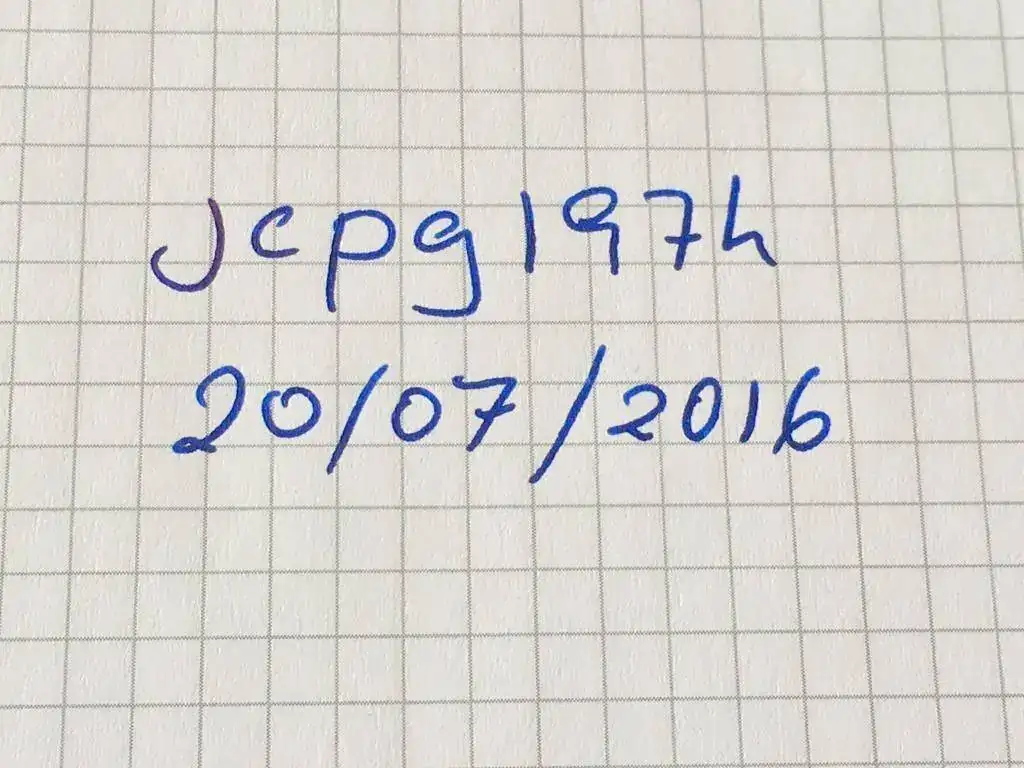 jcpg197h
20/07/2016